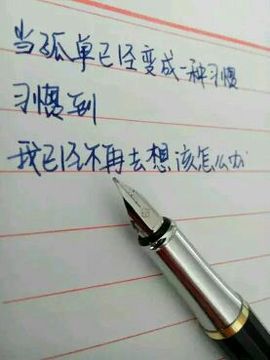 当孤单已经变成一种习惯
习惯到
我已经不再去想该怎么办